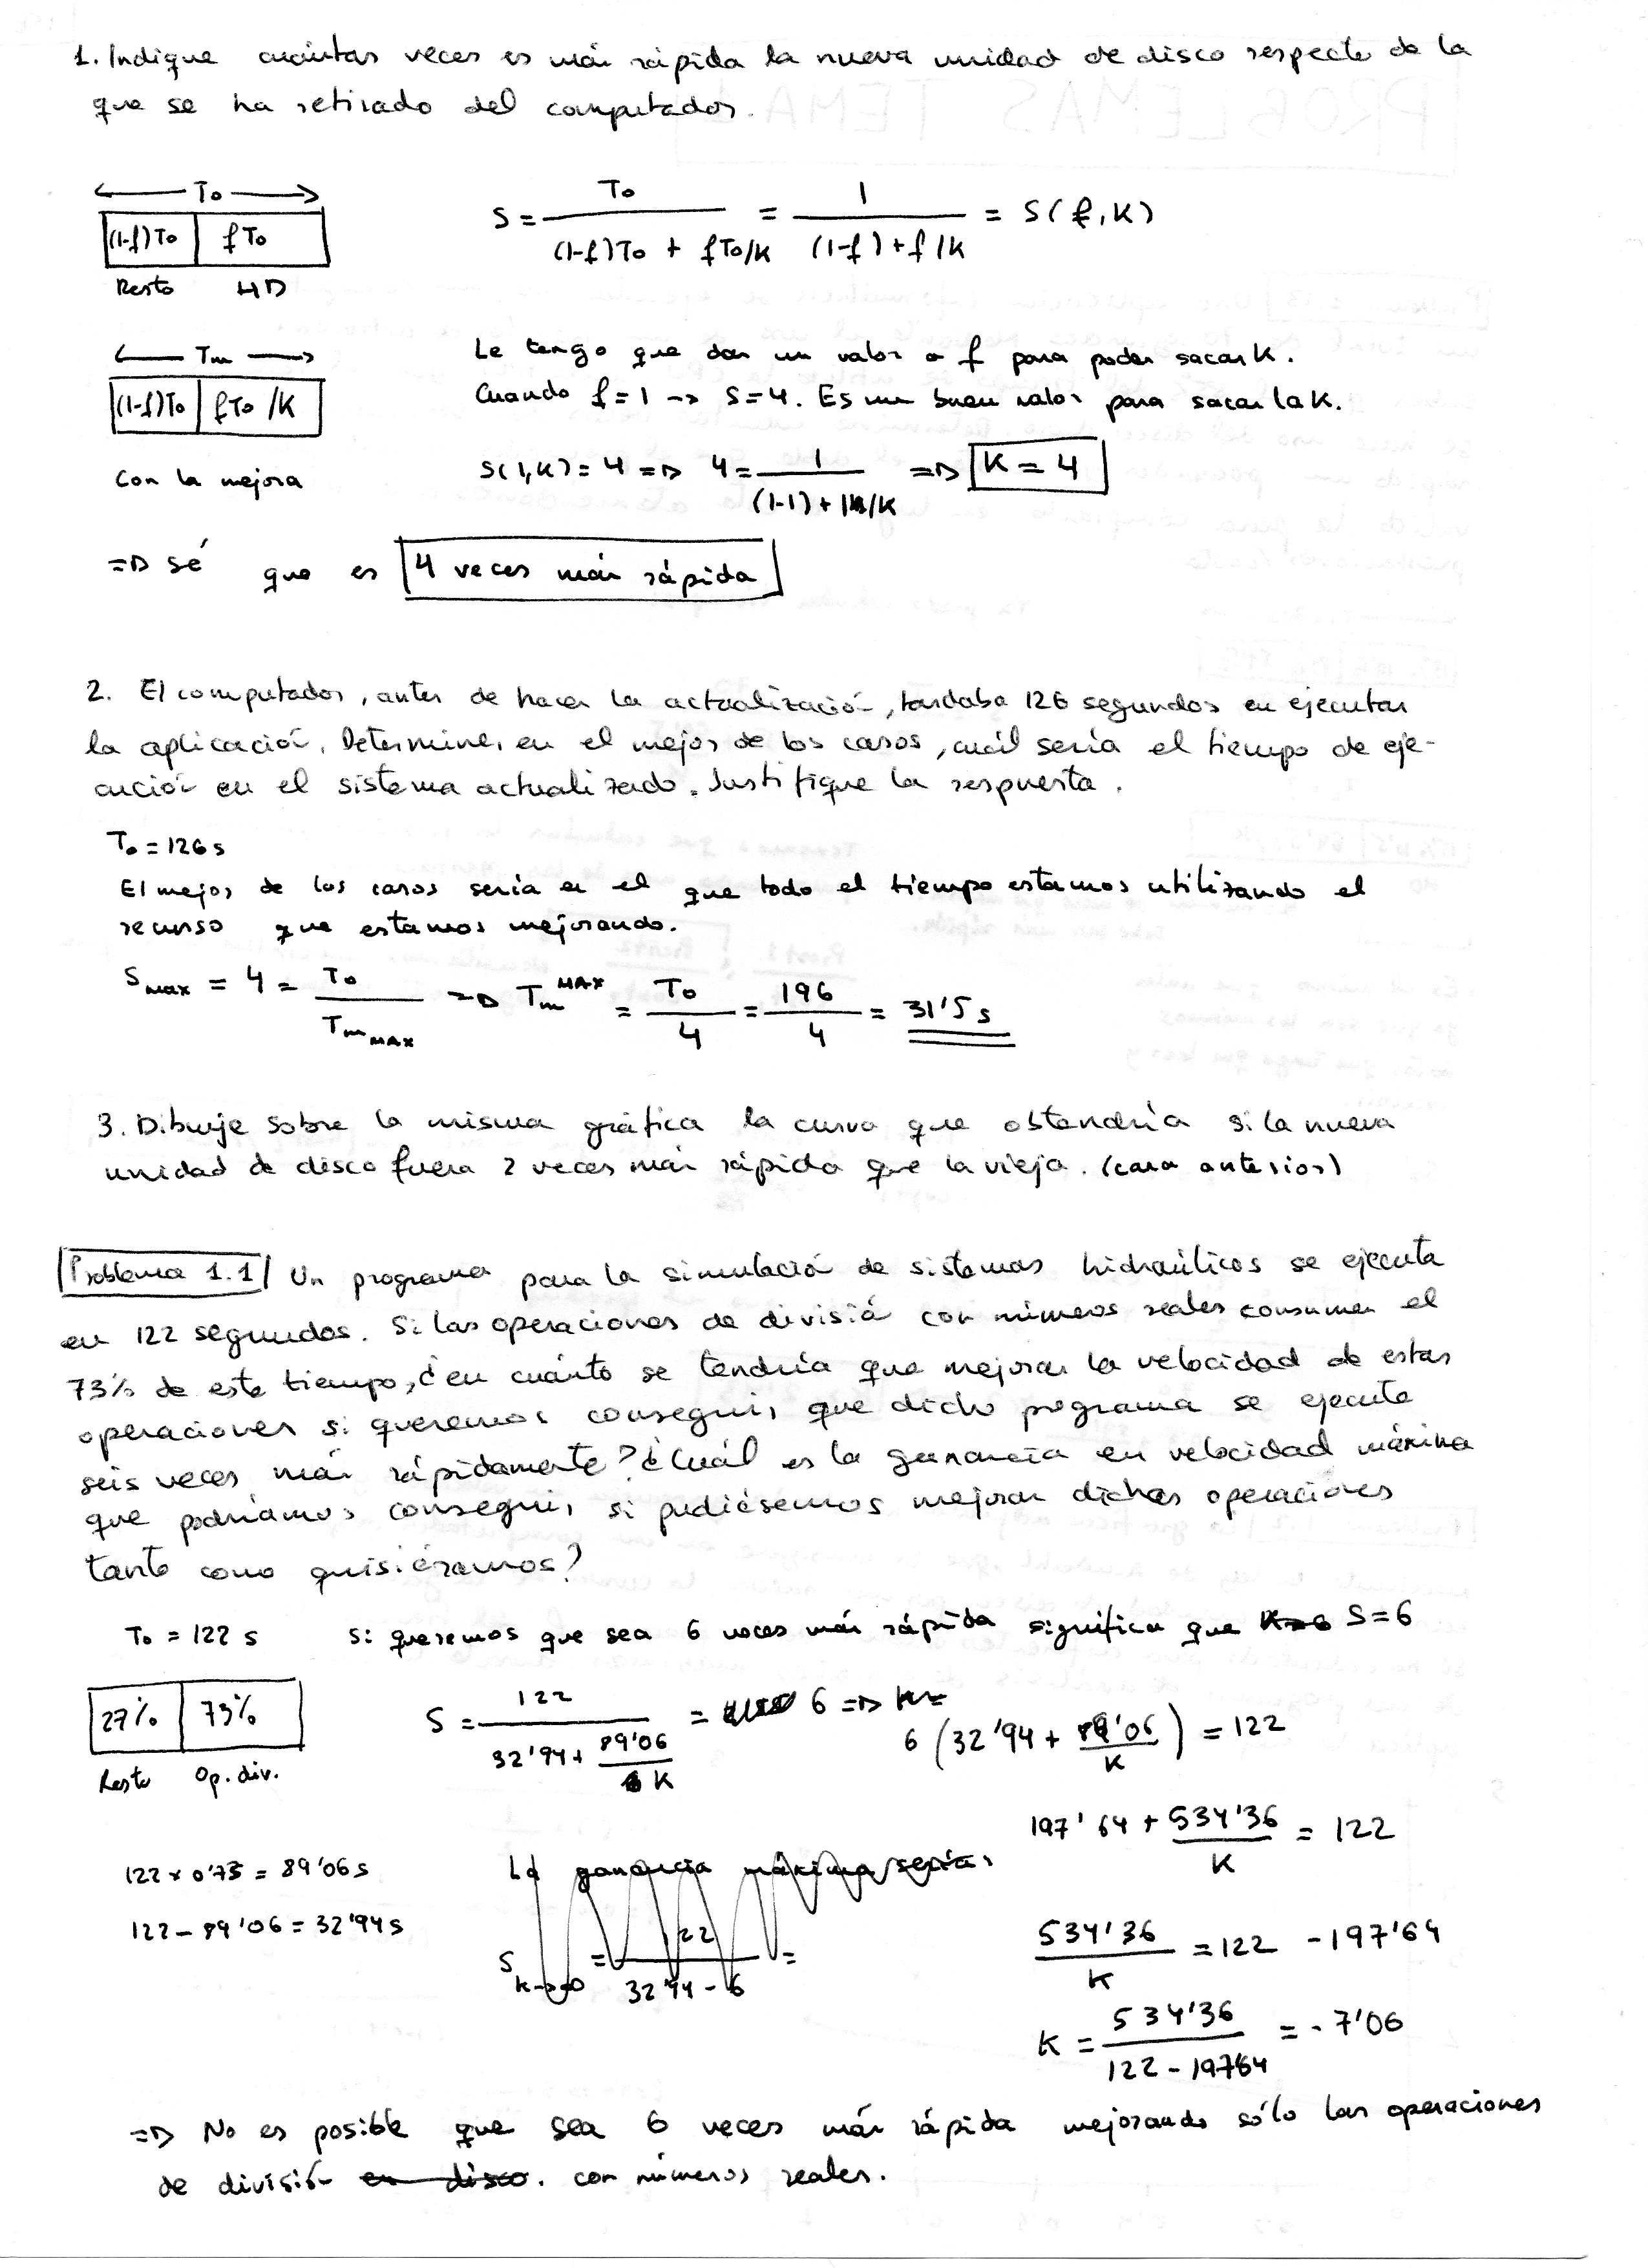 1. Indique cuántas veces es más rápida la nueva unidad de disco respecto de la
que se ha retirado del computador.
To
(1-f)To fTo
Resto HD
S = To / ((1-f)To + fTo/K) = 1 / ((1-f)+f/K) = S(f,K)
Tm
(1-f)To fTo/K
Con la mejora
Le tengo que dar un valor a f para poder sacar K.
Cuando f=1 -> S=4. Es un buen valor para sacar la K.
S(1,K)=4 => 4 = 1 / ((1-1)+1/K) => K=4
=> Sé que es 4 veces más rápida
2. El computador, antes de hacer la actualización, tardaba 126 segundos en ejecutar
la aplicación. Determine, en el mejor de los casos, cuál sería el tiempo de eje-
cución en el sistema actualizado. Justifique la respuesta.
To = 126 s
El mejor de los casos sería en el que todo el tiempo estamos utilizando el
recurso que estamos mejorando.
Smax = 4 = To / Tm MAX => Tm MAX = To / 4 = 196 / 4 = 31'5 s
3. Dibuje sobre la misma gráfica la curva que obtendría si la nueva
unidad de disco fuera 2 veces más rápida que la vieja. (cara anterior)
Problema 1.1 Un programa para la simulación de sistemas hidraúlicos se ejecuta
en 122 segundos. Si las operaciones de división con números reales consumen el
73% de este tiempo, ¿en cuánto se tendría que mejorar la velocidad de estas
operaciones si queremos conseguir que dicho programa se ejecute
seis veces más rápidamente? ¿Cuál es la ganancia en velocidad máxima
que podríamos conseguir si pudiésemos mejorar dichas operaciones
tanto como quisiéramos?
To = 122 s
Si queremos que sea 6 veces más rápida significa que K=6 S=6
27% 73%
Resto Op. div.
S = 122 / (32'94 + 89'06 / K) = 6 => K=
6 (32'94 + 89'06 / K) = 122
197'64 + 534'36 / K = 122
122 x 0'73 = 89'06 s
122 - 89'06 = 32'94 s
La ganancia máxima sería:
S K->∞ = 122 / (32'94 - 6) =
534'36 / K = 122 - 197'64
K = 534'36 / (122 - 197'64) = -7'06
=> No es posible que sea 6 veces más rápida mejorando sólo las operaciones
de división en disco. con números reales.